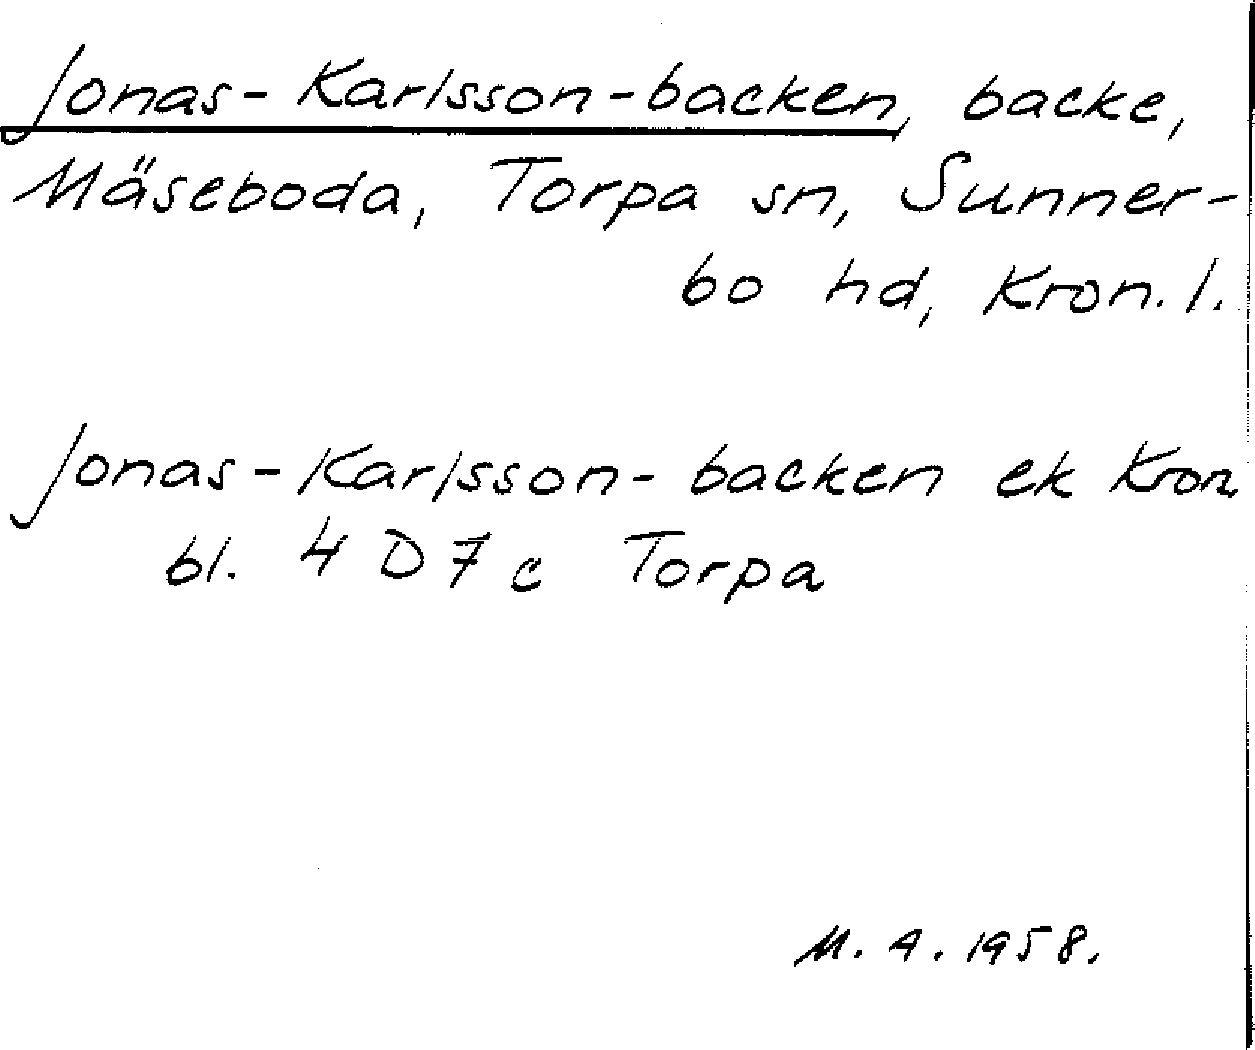 Jonas-Karlsson-backen, backe,
Mäseboda, Torpa sn, Sunner-
bo hd, Kron. l.
Jonas-Karlsson-backen ek Kron
bl. 4 D 7 c Torpa
M. A. 1958.